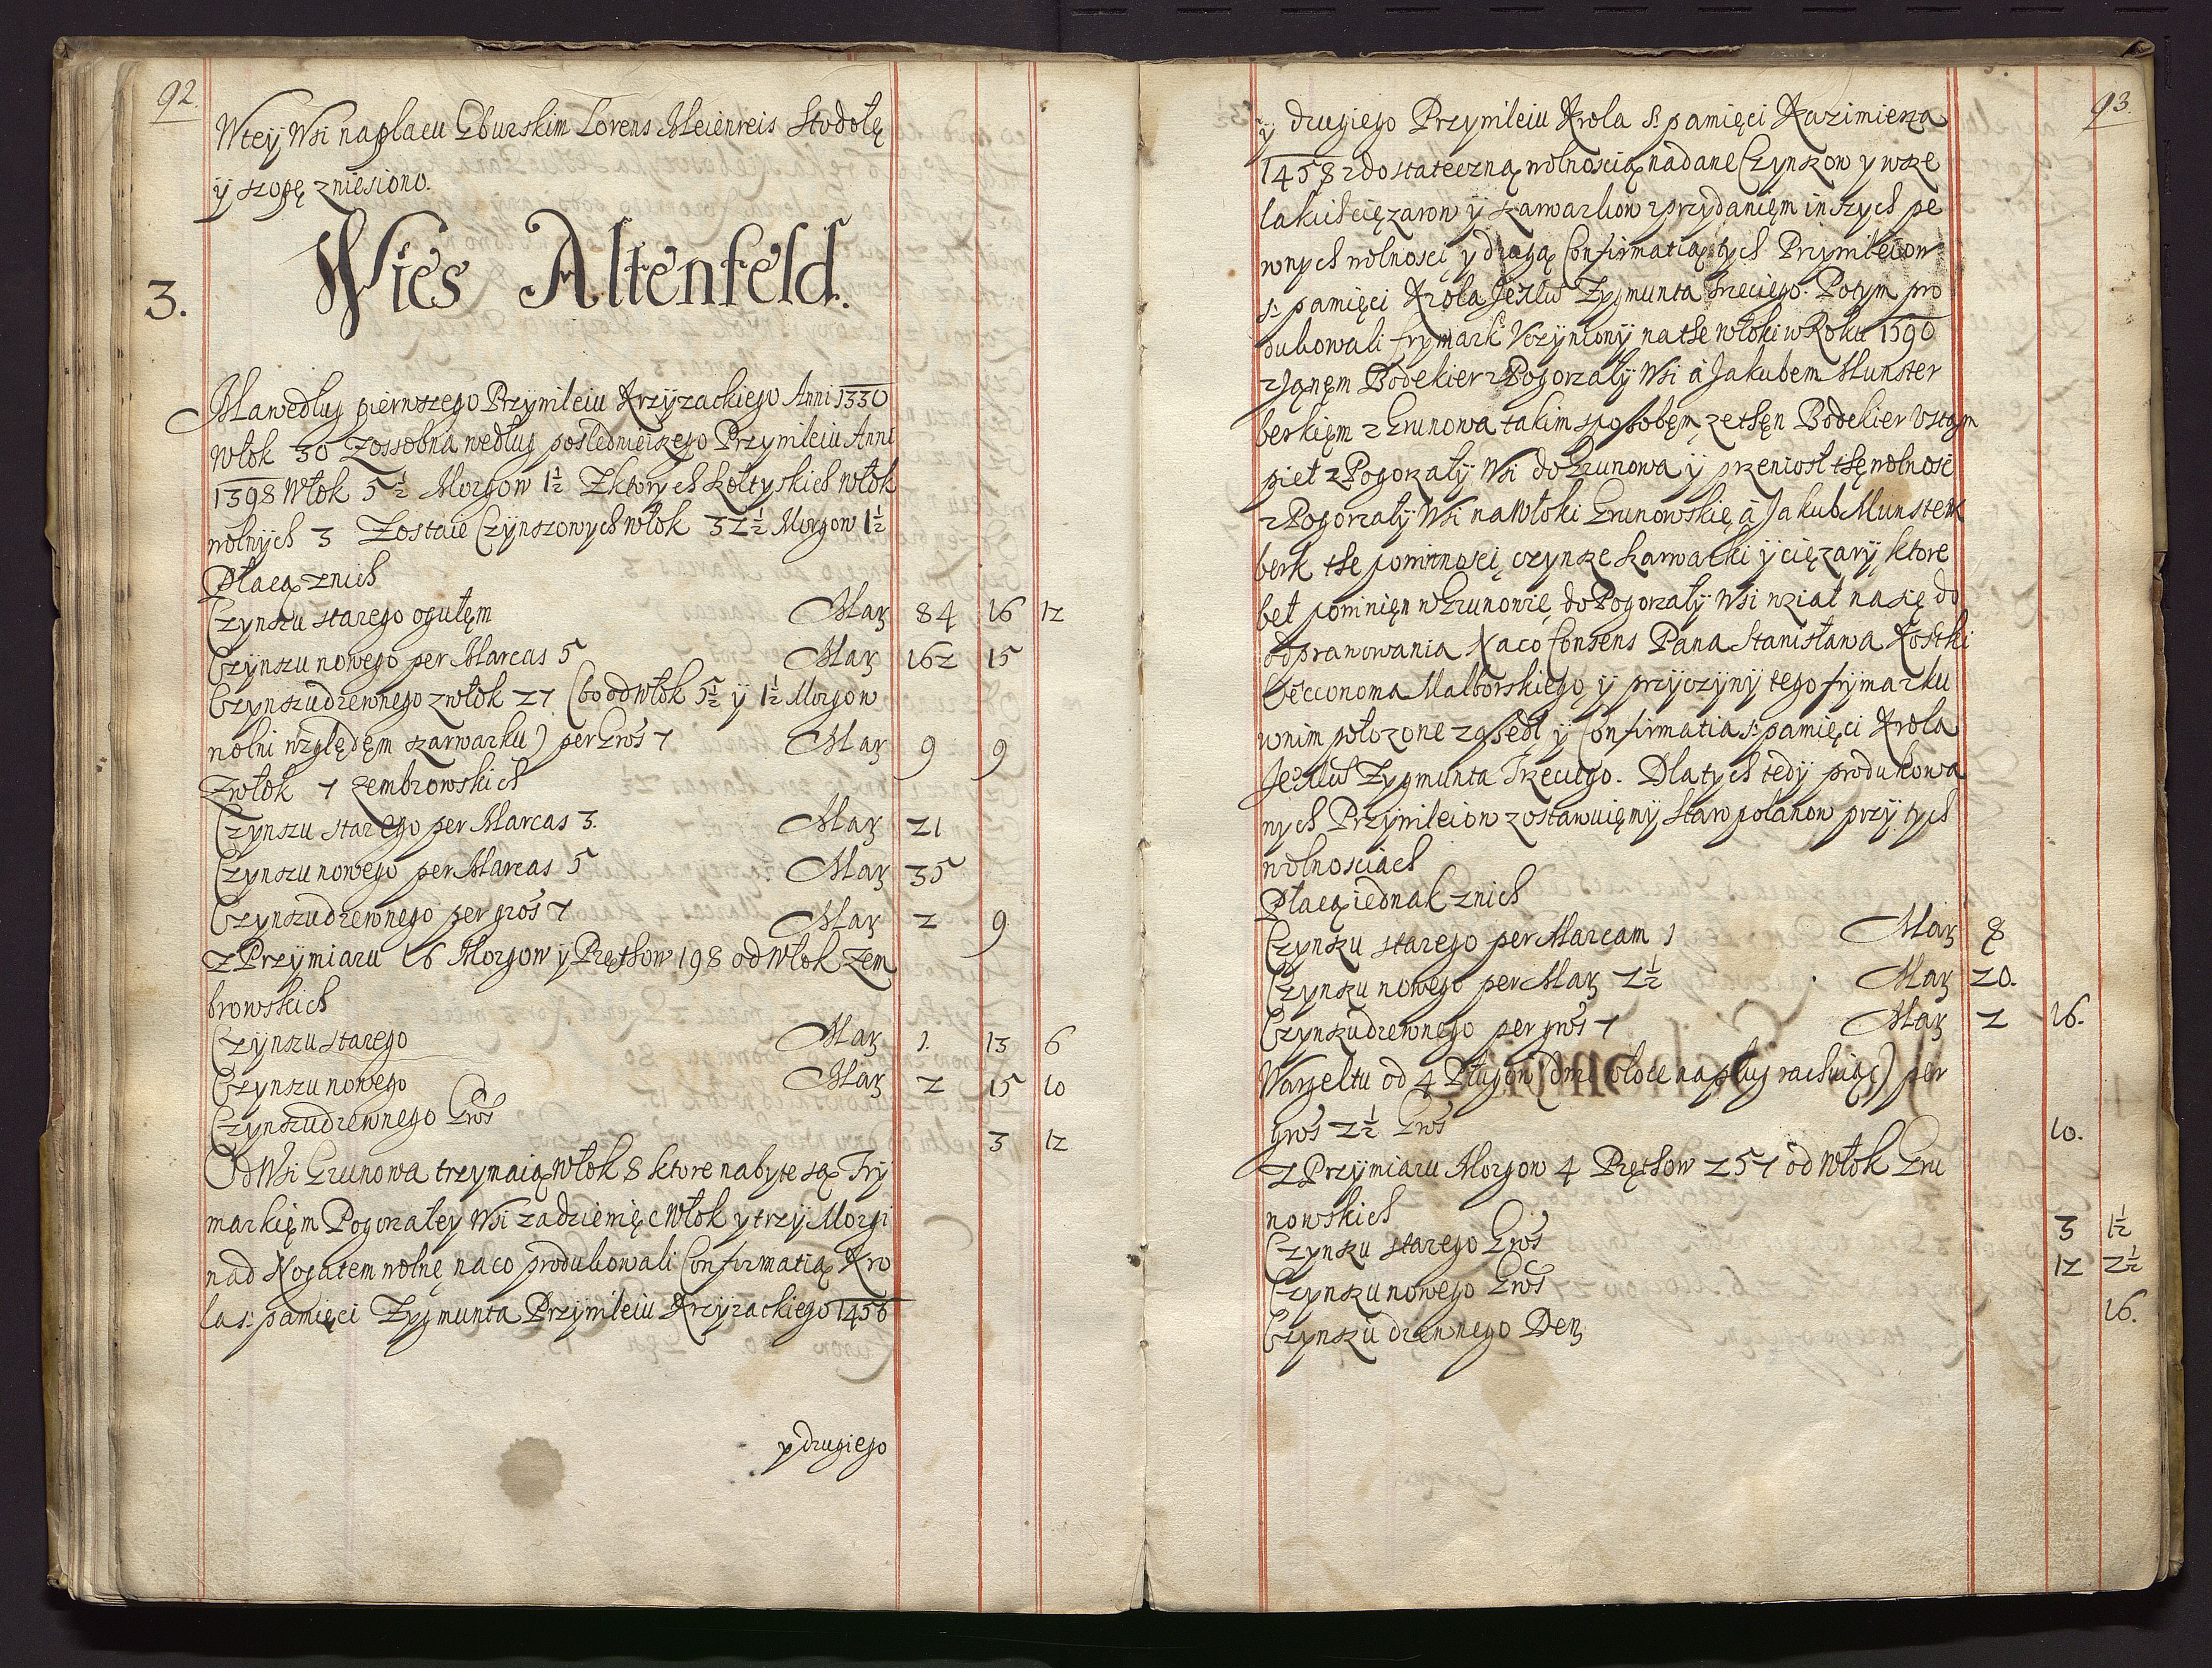 92.
W teÿ Wsi na placu Gburskim Lorens Meienreis Stodołę
ÿ szopę zniesiono.
3. Wies Altenfeld.
Ma według pierwszego Przÿwileiu Krzÿzackiego Anni 1330
Włok 30 Zossobna według posledniejszego Przywileiu Anni
1398 Włok 5½ Morgow 1½ Z ktorych szołtyskich włok
wolnÿch 3 Zostaie Czÿnszowych włok 32½ Morgow 1½
Płacą z nich
Czynszu starego ogułem Mar 84 16 12
Czÿnszu nowego per Marcas 5 Mar 162 15
Czynszu drewnego z włok 27 (bo od włok 5½ ÿ 1½ Morgow
wolni względem szarwarku) per Gros 7 Mar 9 9
Z włok 7 zembrowskich
Czynszu starego per Marcas 3. Mar 21
Czynszu nowego per Marcas 5 Mar 35
Czynszu drewnego per gros 7 Mar 2 9
z Przymiaru 16 Morgow ÿ Prętow 198 od włok Zem
browskich
Czÿnszu starego Mar 1. 13 6
Czynszu nowego Mar 2 15 10
Czynszu drewnego Gros 3 12
Od Wsi Grunowa trzymaią włok 8 ktore nabyte są Fry
markiem Pogorzałey Wsi za dziewięć włok y trzÿ Morgi
nad Nogatem wolne na co produkowali Confirmatią Kro
la s. pamięci Zygmunta Przÿwileiu Krzÿzackiego 1456
y drugiego
93.
ÿ drugiego Przywileiu Krola S. pamięci Kazimierza
1458 z dostateczną wolnoscią nadane Czynszow y wsze
lakich cięzarow ÿ szarwarkow z przydaniem inszych pe
wnych wolnosci y drugą Confirmatią tych Przywileiow
s. pamięci Krola Je° Mci Zygmunta Trzeciego. Potym pro
dukowali frymark Uczyniony na the włoki w Roku 1590
z Janem Bodekier z Pogorzałÿ Wsi a Jakubem Munster
berkiem z Grunowa takim sposobem, ze then Bodekier Ustąm
pieł z Pogorzałÿ Wsi do Grunowa ÿ przeniosł thę wolnosc
z Pogorzałÿ Wsi na Włoki Grunowskie a Jakub Munster
berk the powinnosci, czynsze szarwarki ÿ cięzarÿ, ktore
beł powinien w Grunowie, do Pogorzałÿ Wsi wział na się do
odprawowania Na co Consens Pana Stanisława Kostki
Oeconoma Malborskiego, ÿ przÿczynÿ tego frÿmarku
w nim połozone zaszedł ÿ Confirmatia s. pamięci Krola
Je° Mci Zygmunta Trzeciego. Dla tych tedÿ produkowa
nych Przÿwileiow zostawuiemÿ Staropolanow przÿ tych
wolnosciach
Płacą iednak z nich
Czynszu starego per Marcam 1 Mar 8
Czynszu nowego per Mar 2½ Mar 20.
Czynszu drewnego per gros 7 Mar 2 16.
Wargeltu od 4 Pługow (dwie włoce na pług rachuiąc) per
gros 2½ Gros 10.
z Przÿmiaru Morgow 4 Prętow 257 od włok Gru
nowskich
Czynszu starego Gros 3 1½
Czynszu nowego Gros 12 2½
Czynszu drewnego Den 16.